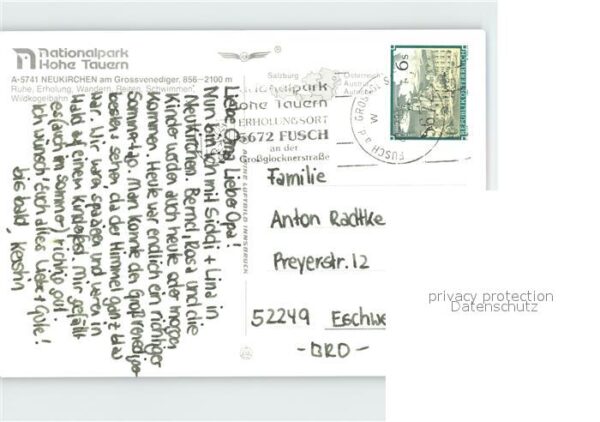 Nationalpark
Hohe Tauern
A-5741 NEUKIRCHEN am Grossvenediger, 856-2100 m
Ruhe, Erholung, Wandern, Reiten, Schwimmen,
Wildkogelbahn
Liebe Oma, Lieber Opa!
Nun bin ich mit Siddi + Lina in
Neukirchen. Bernd, Rosa und die
Kinder werden auch heute oder morgen
kommen. Heute war endlich ein richtiger
Sommertag. Man konnte den Großvenediger
bestens sehen, da der Himmel ganz blau
war. Wir waren spazieren und waren im
Wald auf einem Kinderfest. Mir gefällt
es (auch im Sommer) richtig gut!
Ich wünsch' Euch alles Liebe + Gute!
bis bald, Kerstin
ALPINE LUFTBILD INNSBRUCK
Salzburg
Österreich
Austria
Nationalpark
Hohe Tauern
ERHOLUNGSORT
5672 FUSCH
an der
Großglocknerstraße
FUSCH a.d. GROSS
6 S
REPUBLIK ÖSTERREICH
Familie
Anton Radtke
Preyerstr. 12
52249 Eschwe
- BRD -
privacy protection
Datenschutz